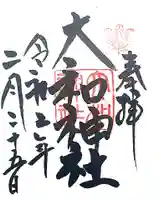 奉拝
大和田神社
令和二年
二月二十五日